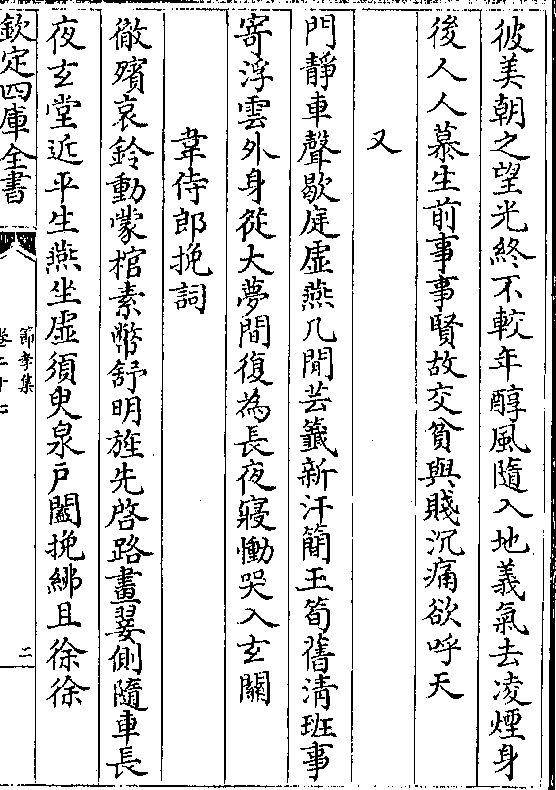 彼美朝之望光終不較年醇風隨入地義氣去凌煙身
後人人慕生前事事賢故交貧與賤沉痛欲呼天
又
門靜車聲歇庭虛燕几閒芸籤新汗簡玉筍舊清班事
寄浮雲外身從大夢間復為長夜寢慟哭入玄關
韋侍郎挽詞
徹殯哀鈴動蒙棺素幣舒明旌先啓路畫翣側隨車長
夜玄堂近平生燕坐虛須臾泉戶闔挽紼且徐徐
欽定四庫全書
節孝集
二